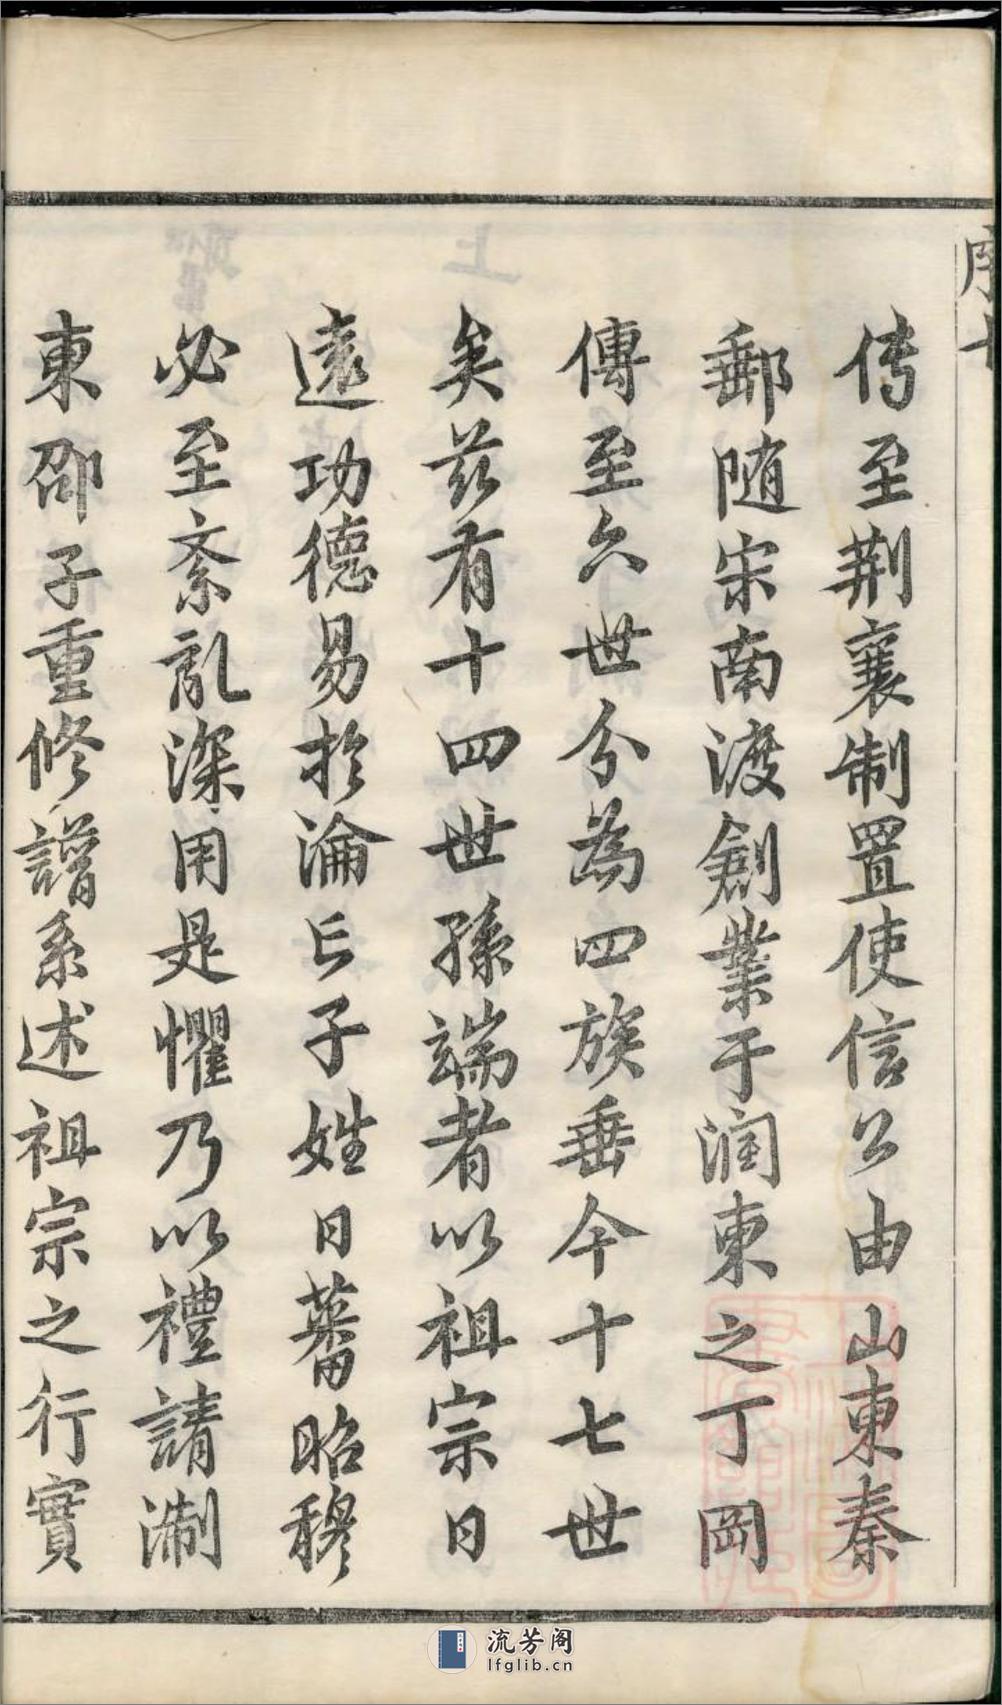 序七
传至荆襄制置使信公由山東秦
郵随宋南渡創業于润東之丁岡
傳至六世分為四族垂今十七世
矣兹有十四世孫端者以祖宗日
遠功德易於淪亡子姓日蕃昭穆
必至紊亂深用是懼乃以禮請淛
東邵子重修譜系述祖宗之行實
流芳阁
lfglib.cn